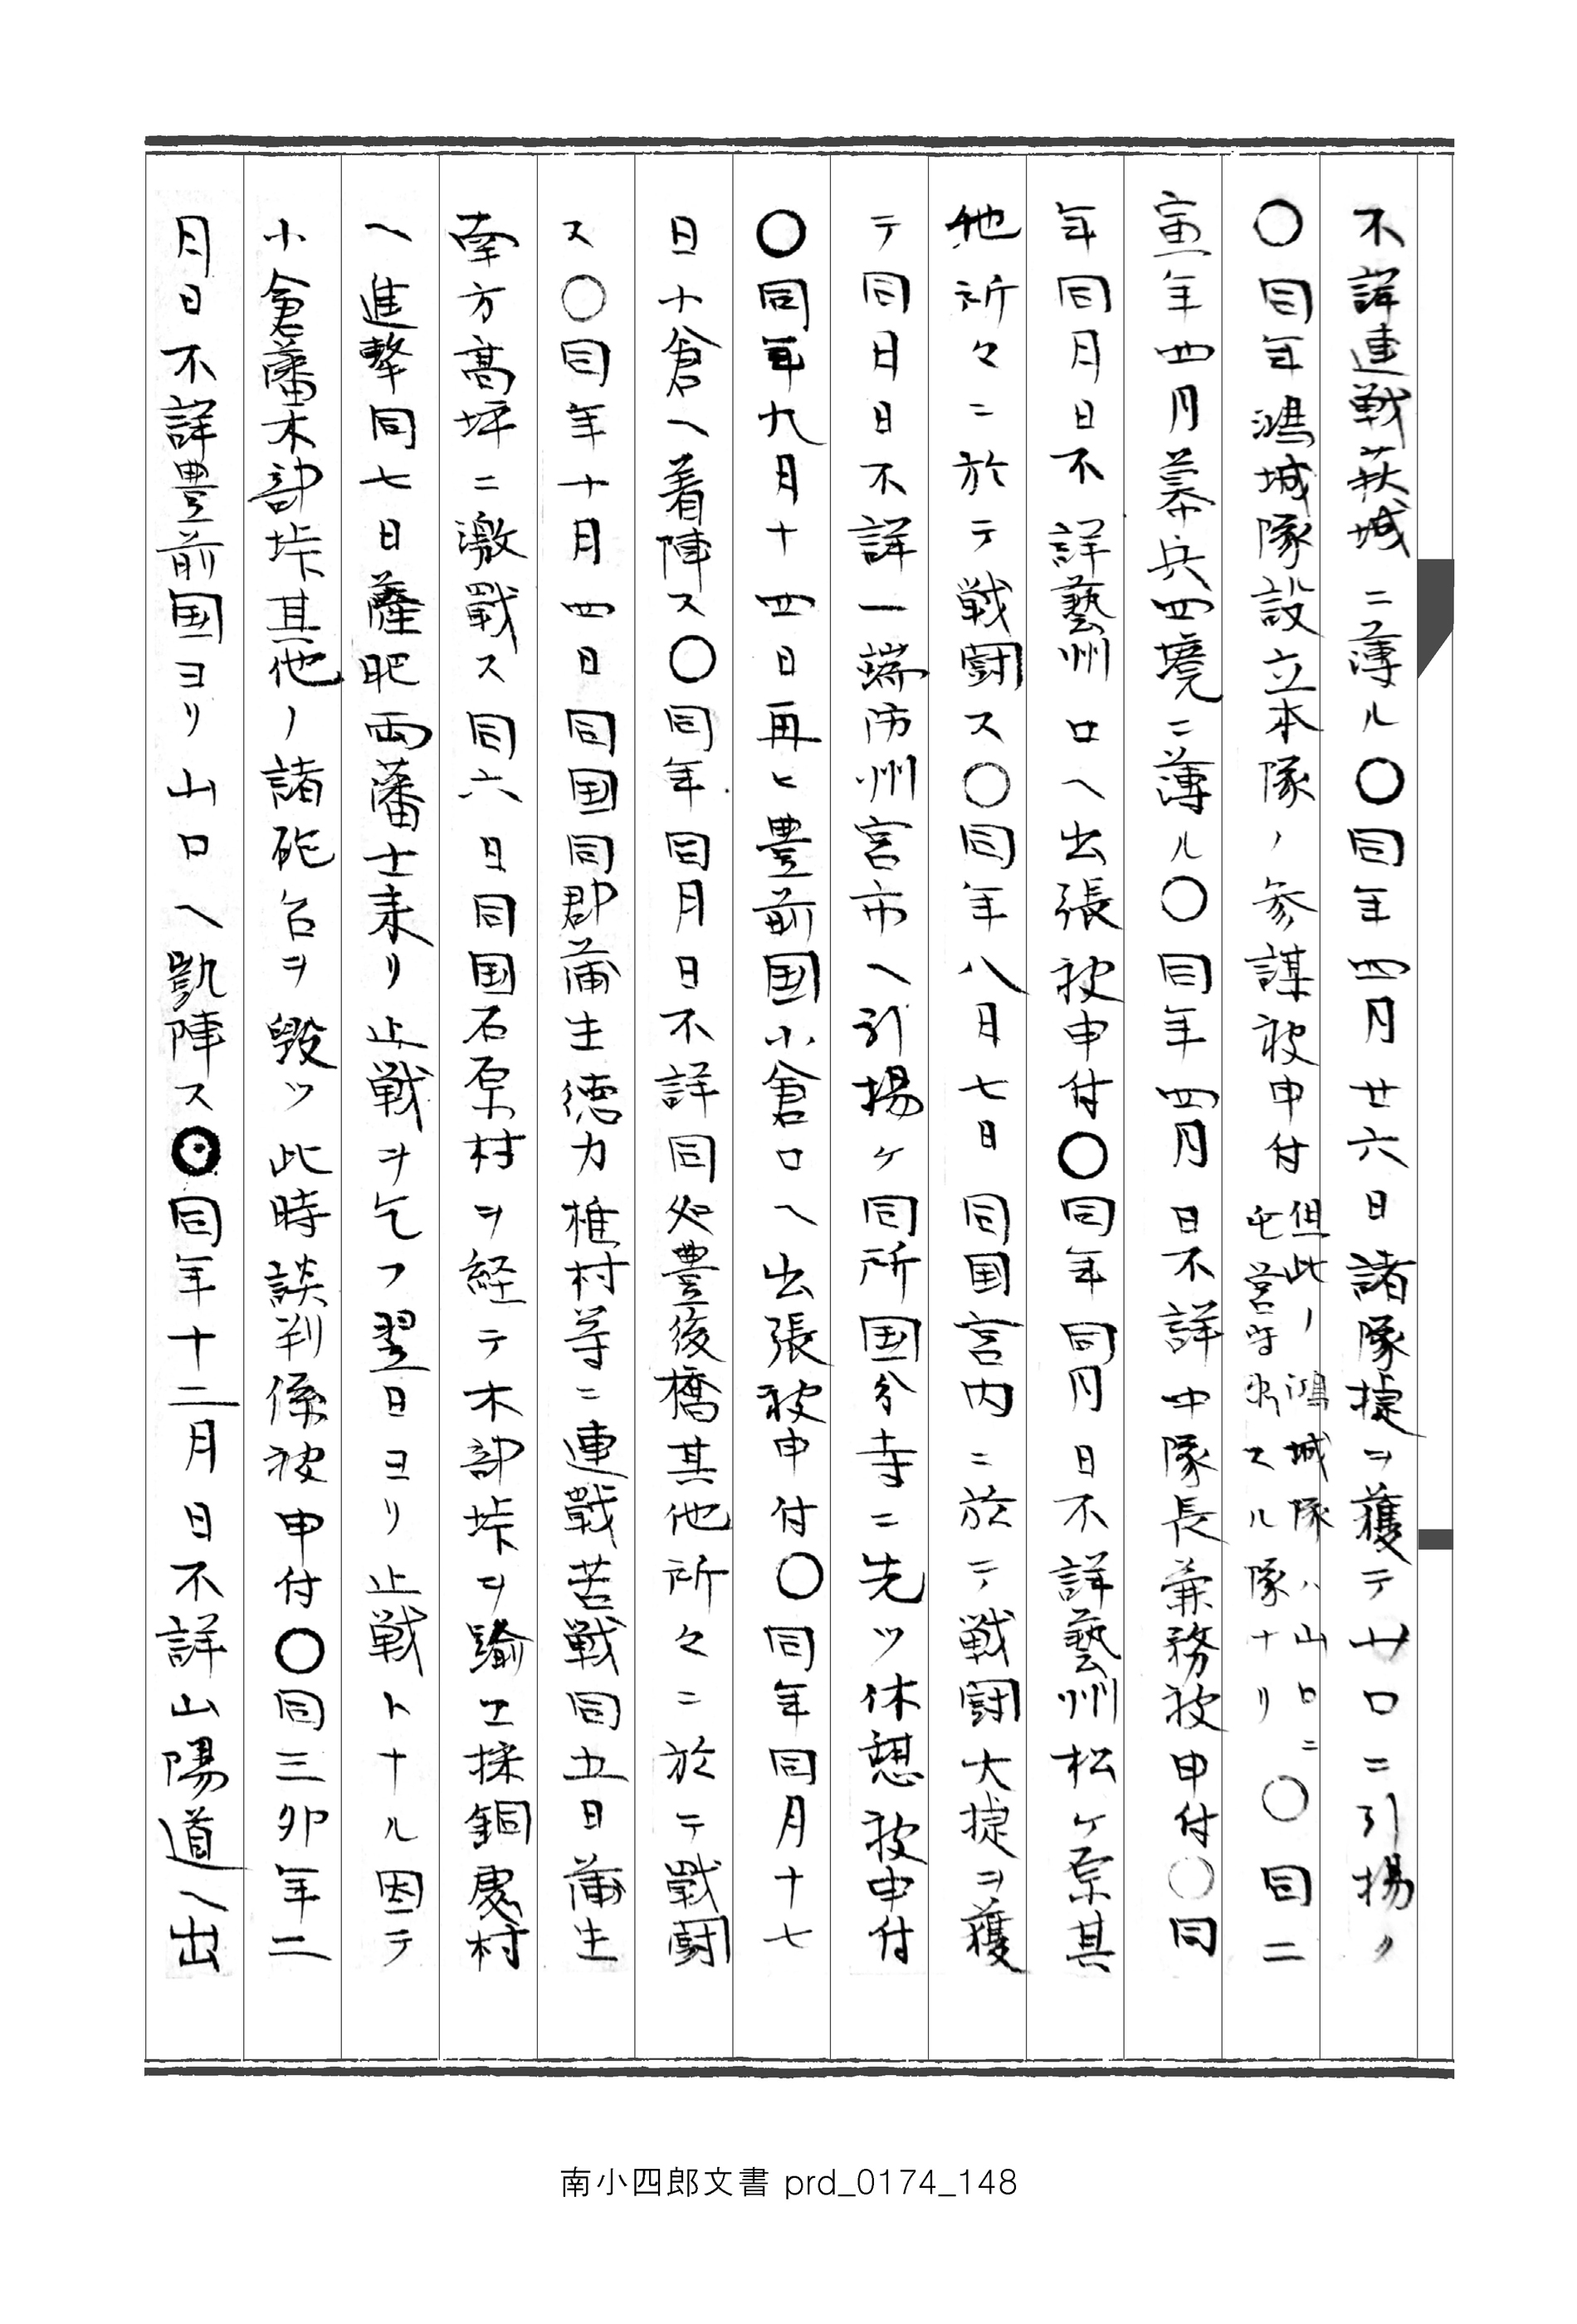 不詳連戦萩城ニ薄ル〇同年四月廿六日諸隊捷ヲ獲テ山口ニ引揚ク
〇同年鴻城隊設立本隊ノ参謀被申付但此ノ鴻城隊ハ山口ニ屯営守衛スル隊ナリ〇同二
寅年四月幕兵四境ニ薄ル〇同年四月日不詳中隊長兼務被申付〇同
年同月日不詳藝州口ヘ出張被申付〇同年同月日不詳藝州松ヶ原其
他所々ニ於テ戦闘ス〇同年八月七日同国宮内ニ於テ戦闘大捷ヲ獲
テ同日日不詳一端防州宮市ヘ引揚ケ同所国分寺ニ先ツ休憩被申付
〇同年九月十四日再ヒ豊前国小倉口ヘ出張被申付〇同年同月十七
日小倉ヘ着陣ス〇同年同月日不詳同処豊後橋其他所々ニ於テ戰闘
ス〇同年十月四日同国同郡蒲生徳力椎村等ニ連戰苦戦同五日蒲生
南方高坪ニ激戰ス同六日同国石原村ヲ経テ木部垰ヲ踰エ採銅處村
ヘ進撃同七日薩肥両藩士来リ止戦ヲ乞フ翌日ヨリ止戦トナル因テ
小倉藩木部垰其他ノ諸砲台ヲ毀ツ此時談判係被申付〇同三卯年二
月日不詳豊前国ヨリ山口ヘ凱陣ス◉同年十二月日不詳山陽道ヘ出
南小四郎文書 prd_0174_148